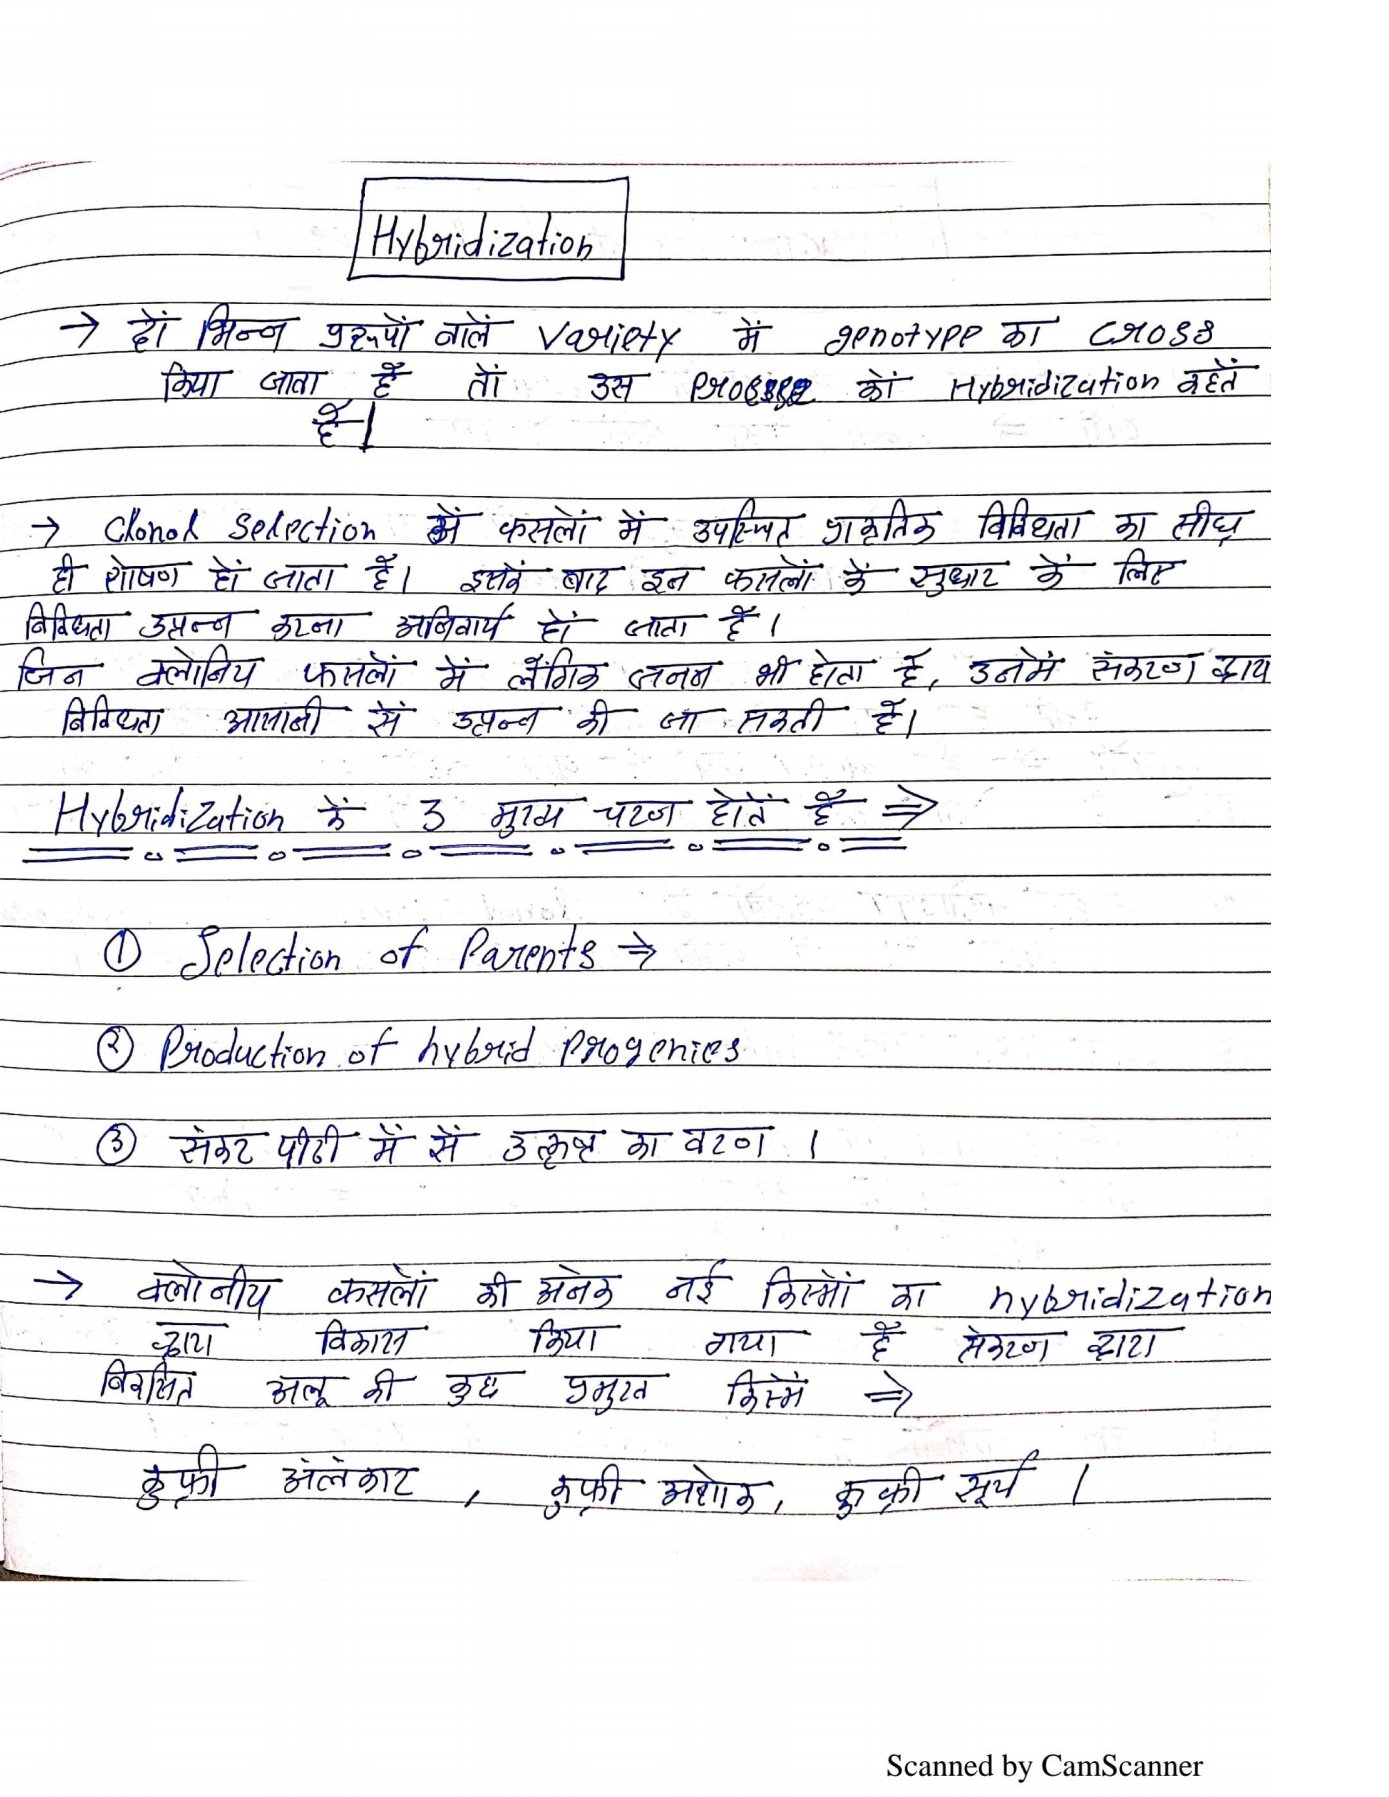 Hybridization
→ दों भिन्न प्ररूपों वालें Variety में genotype का cross
किया जाता हैं तों उस process कों Hybridization कहतें
हैं।
→ Clonal Selection में फसलों में उपस्थित प्राकृतिक विविधता का सीध्र
ही शोषण हों जाता हैं। इसकें बाद इन फसलों कें सुधार कें लिए
विविधता उत्पन्न करना अनिवार्य हों जाता हैं।
जिन क्लोनिय फसलों में लैंगिक जनन भी होता हैं, उनमें संकरण द्वारा
विविधता आसानी सें उत्पन्न की जा सकती हैं।
Hybridization कें 3 मुख्य चरण होतें हैं ⇒
① Selection of Parents ⇒
② Production of hybrid Progenies
③ संकर पीढी में सें उत्कृष्ट का वरण ।
→ क्लोनीय फसलों की अनेक नई किस्मों का hybridization
द्वारा विकास किया गया हैं संकरण द्वारा
विकसित अलू की कुछ प्रमुख किस्में ⇒
कुफ्री अंलंकार , कुफ्री अशोक, कुफ्री सूर्य ।
Scanned by CamScanner